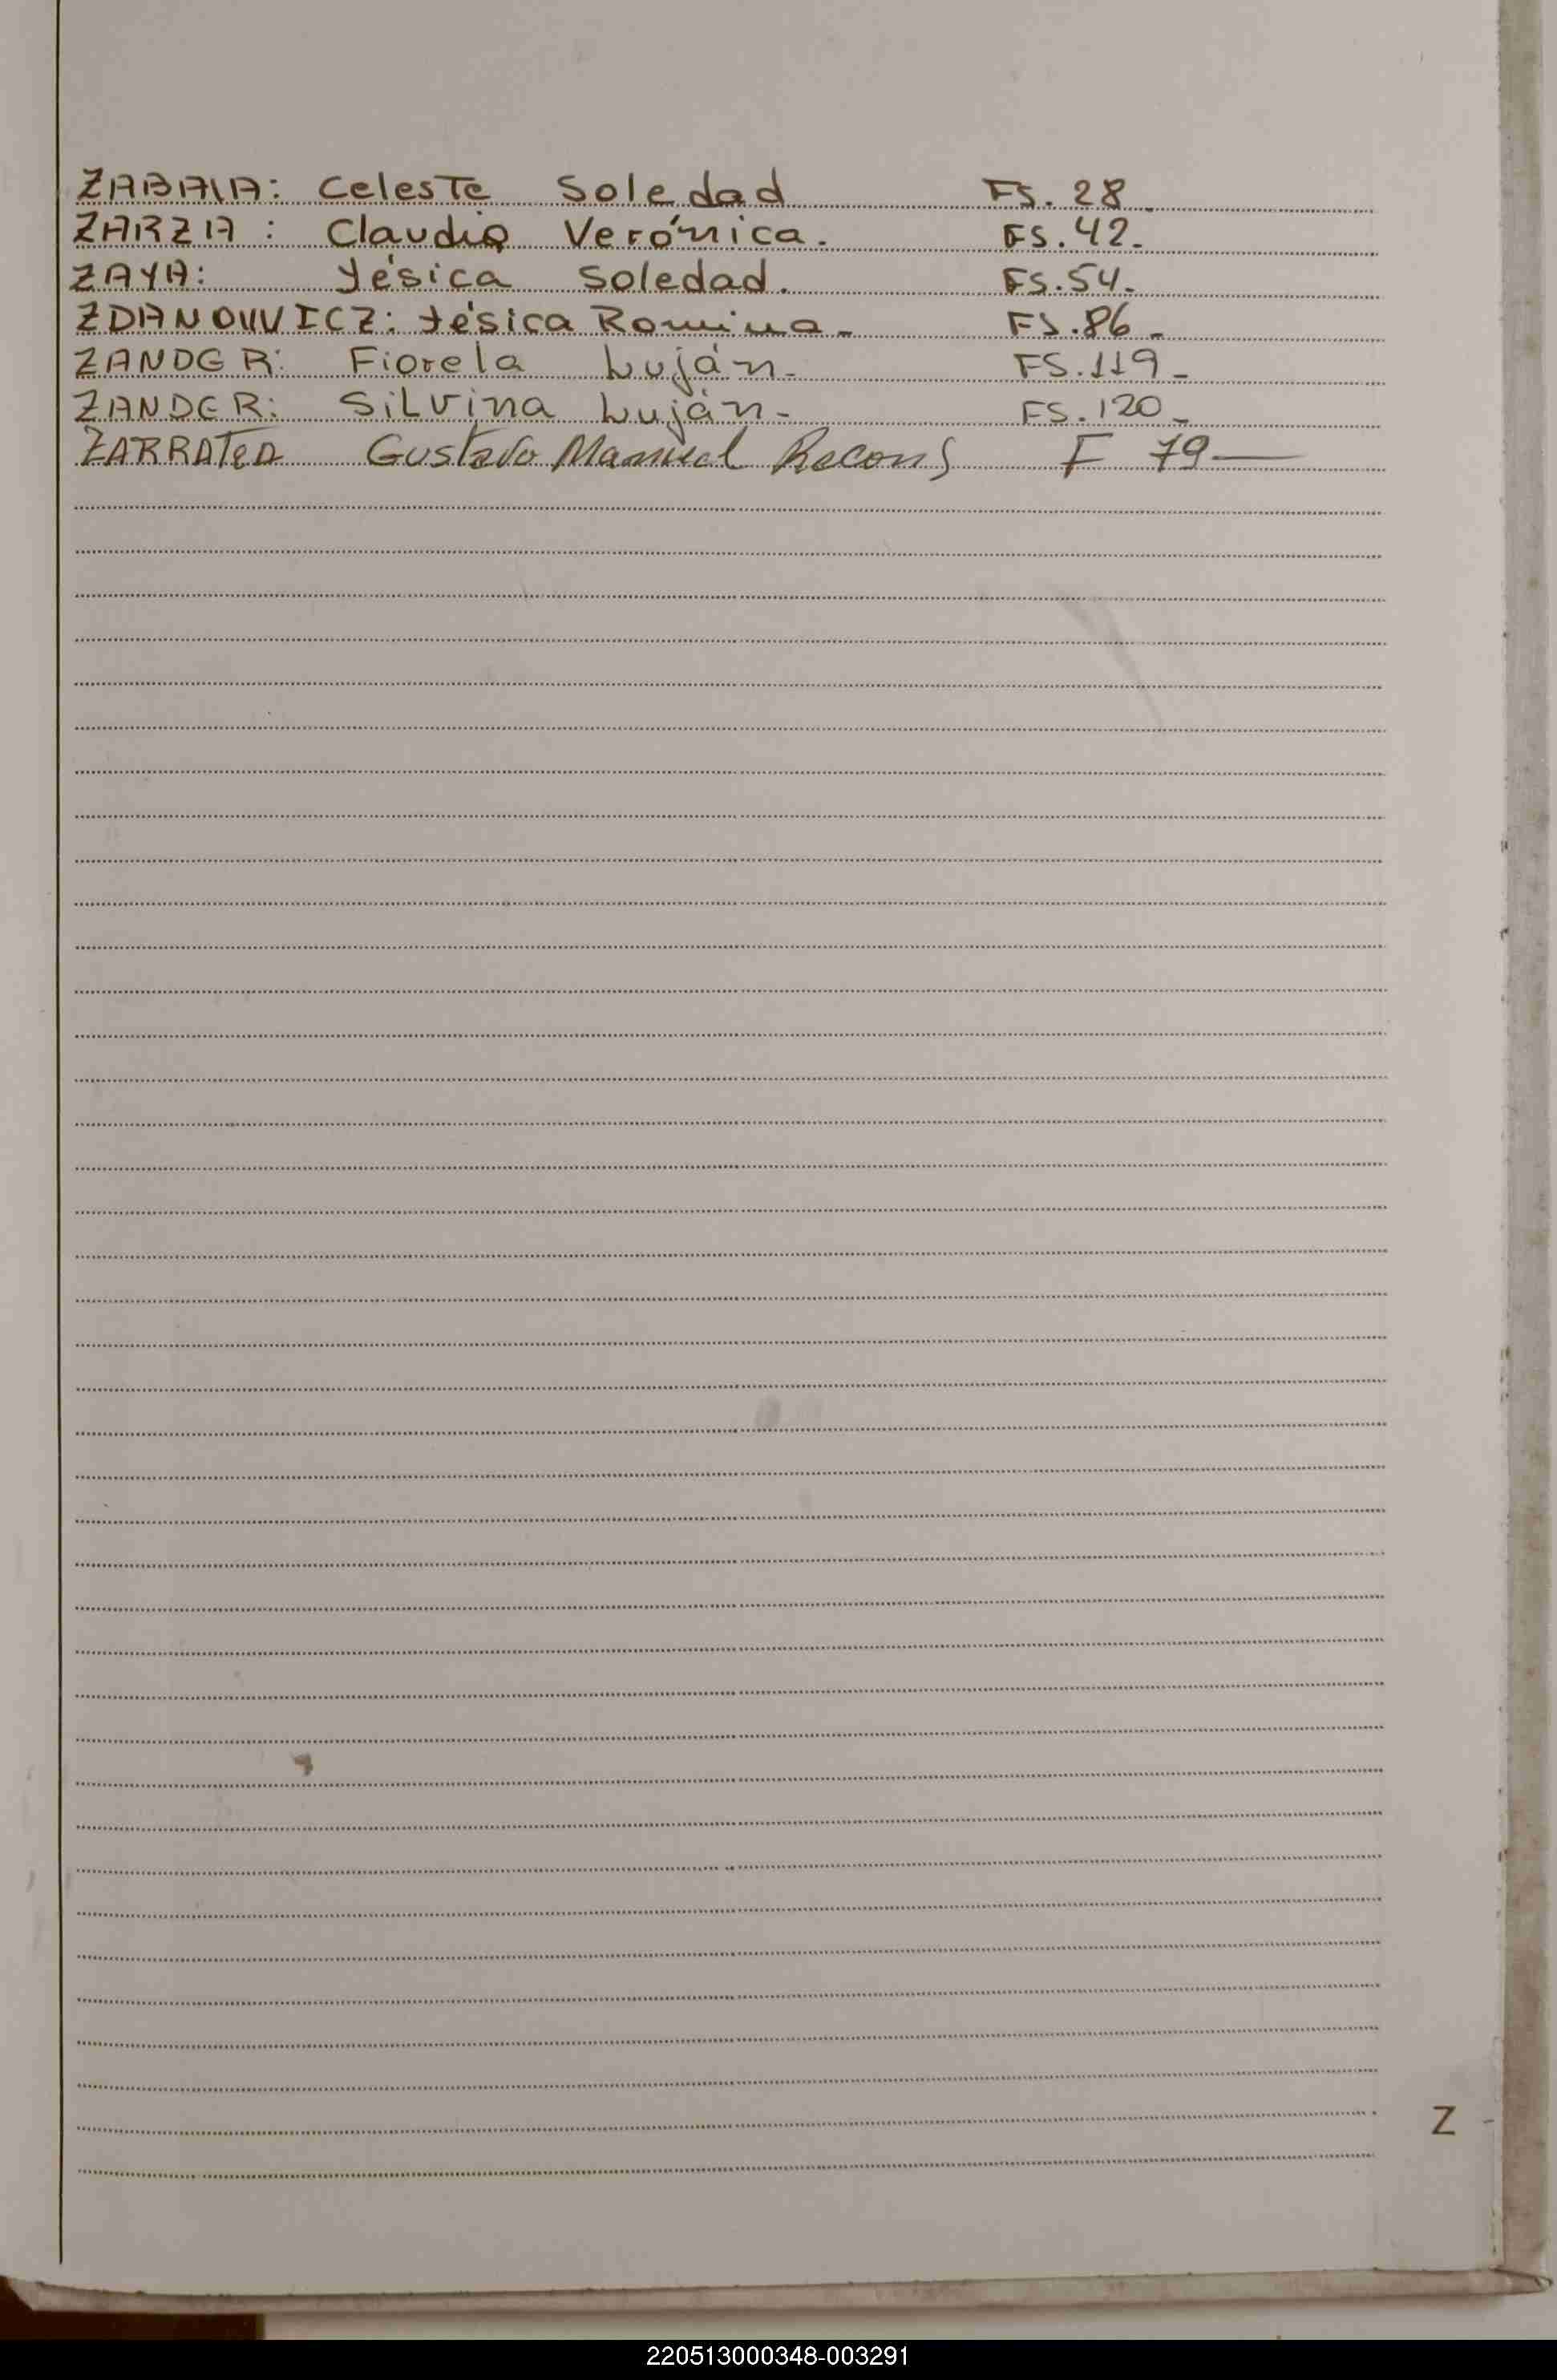 ZABALA: Celeste Soledad FS. 28_
ZARZA: Claudia Verónica. FS. 42_
ZAYA: Yésica Soledad. FS. 54_
ZDANOWICZ: Yésica Romina_ FS. 86_
ZANDER: Fiorela Luján_ FS. 119_
ZANDER: Silvina Luján_ FS. 120_
ZARRATEA Gustavo Manuel F 79—
Z
220513000348-003291